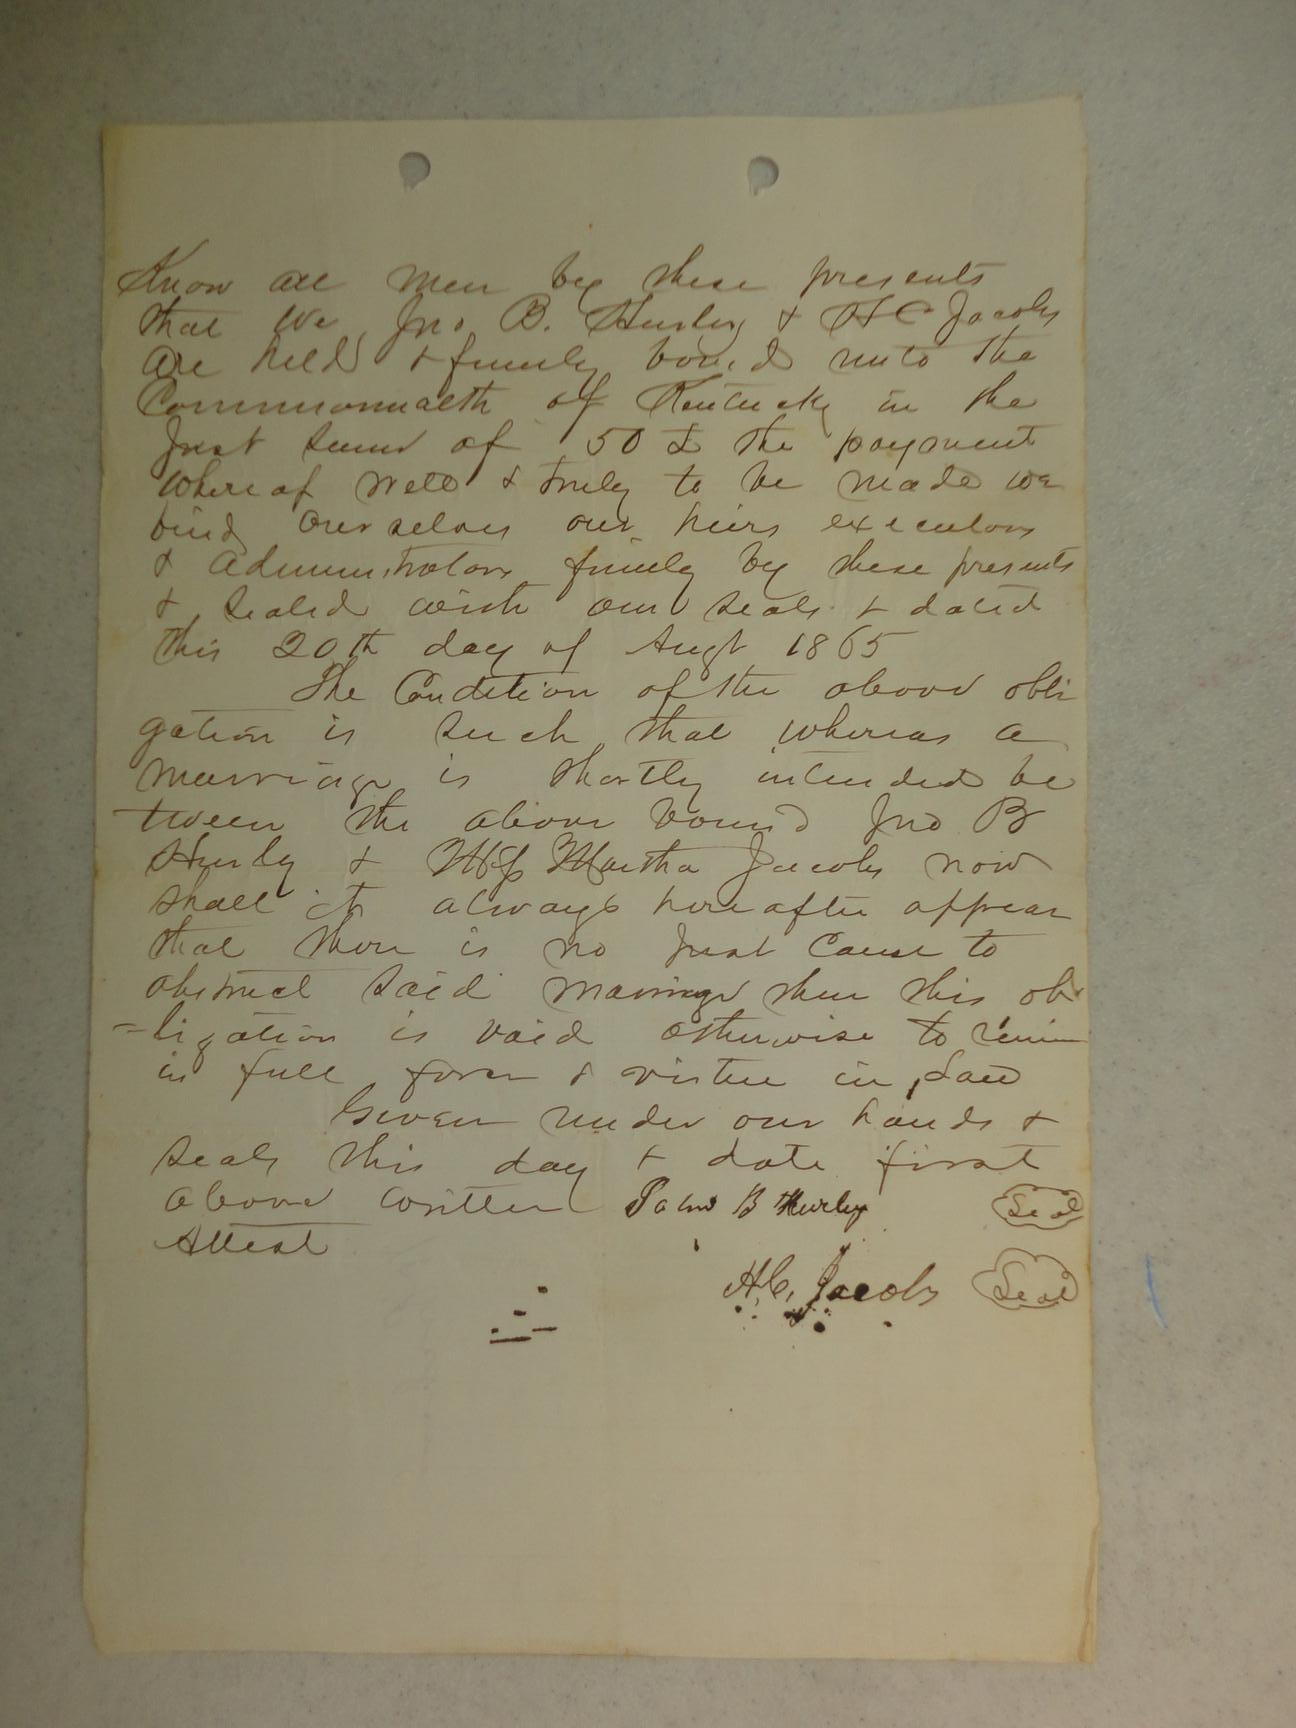 Know all men by these presents
that We Jno B. Hurley & H C Jacobs
are held & firmly bound unto the
Commonwealth of Kentucky in the
Just sum of 50 £ the payment
whereof well & truly to be made we
bind ourselves our heirs executors
& administrators firmly by these presents
& sealed with our seals & dated
this 20th day of Augt 1865
The Condition of the above obli
gation is such that whereas a
marriage is shortly intended be
tween the above bound Jno B
Hurley & Martha Jacobs now
shall it always hereafter appear
that there is no just cause to
obstruct said marriage then this ob
=ligation is void otherwise to remain
in full force & virtue in Law
Given under our hands &
seals this day & date first
above written John B Hurley Seal
Attest
H.C. Jacobs Seal